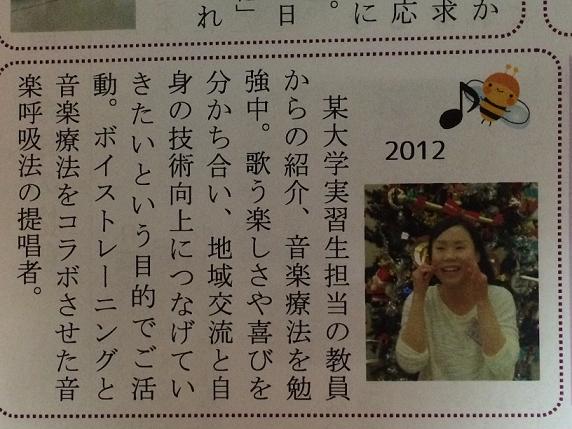 か
求
応
に
。
日
れ
2012
某大学実習生担当の教員
からの紹介、音楽療法を勉
強中。歌う楽しさや喜びを
分かち合い、地域交流と自
身の技術向上につなげてい
きたいという目的でご活
動。ボイストレーニングと
音楽療法をコラボさせた音
楽呼吸法の提唱者。